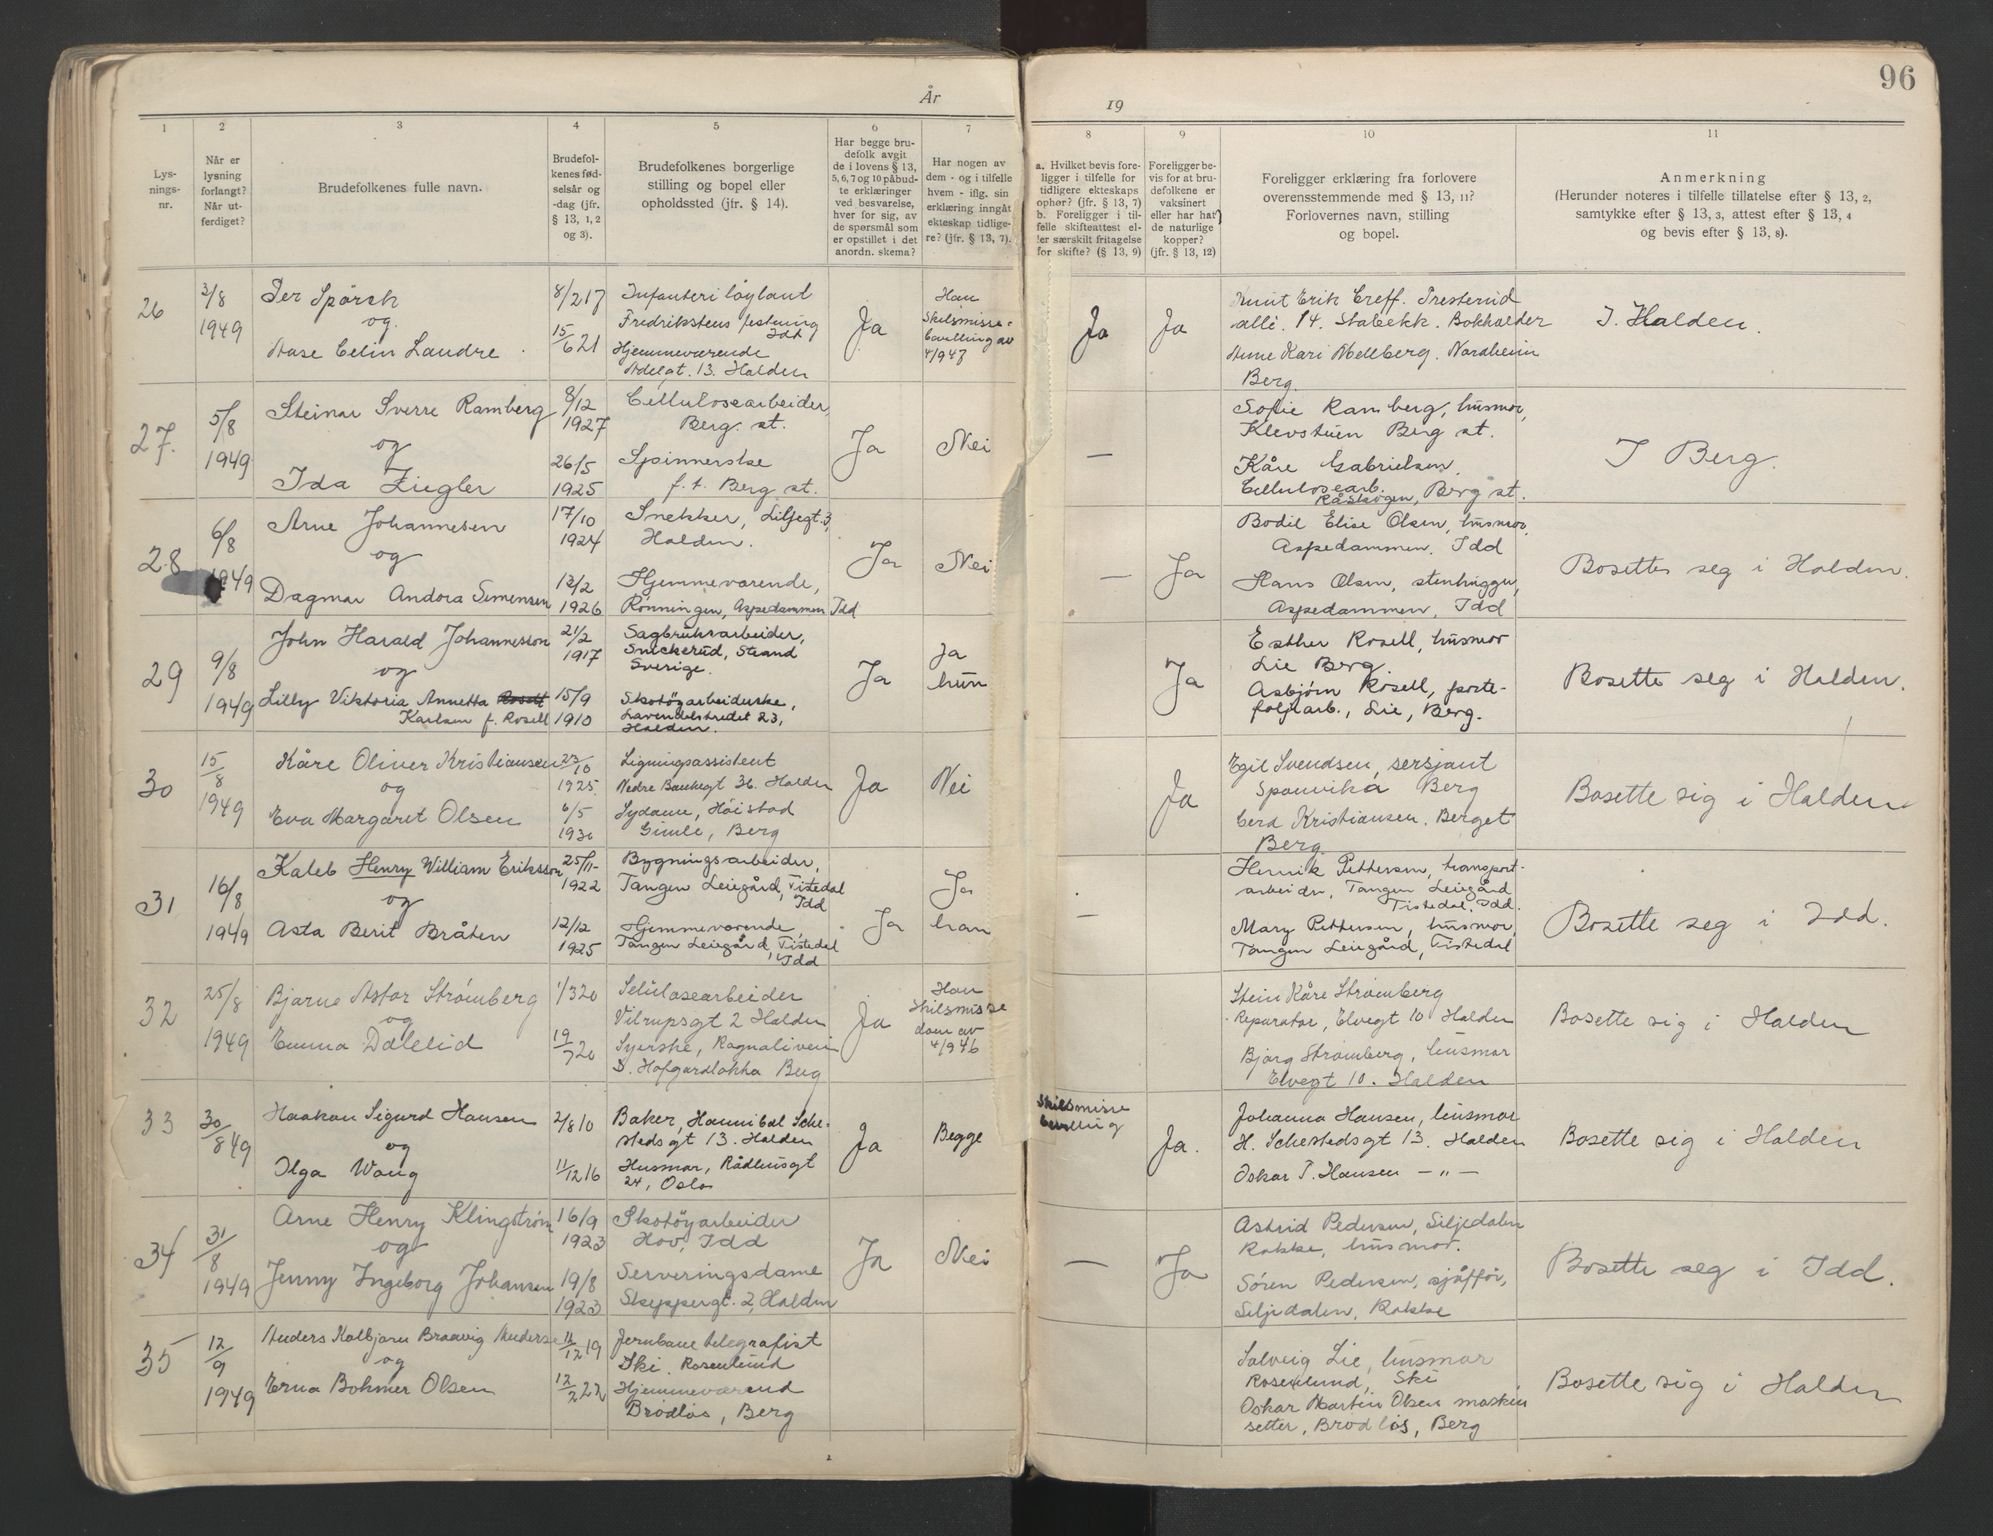 96
År
19
1
2
3
4
5
6
7
8
9
10
11
Lys-
nings-
nr.
Når er
lysning
forlangt?
Når ut-
ferdiget?
Brudefolkenes fulle navn.
Brudefol-
kenes fød-
selsår og
-dag (jfr.
§ 13, 1, 2
og 3).
Brudefolkenes borgerlige
stilling og bopel eller
opholdssted (jfr. § 14).
Har begge bru-
defolk avgit
de i lovens § 13,
5, 6, 7 og 10 påbud-
te erklæringer
ved besvarelse,
hver for sig, av
de spørsmål som
er opstillet i det
anordn. skema?
Har nogen av
dem - og i tilfelle
hvem - iflg. sin
erklæring inngåt
ekteskap tidlige-
re? (jfr. § 13, 7).
a. Hvilket bevis fore-
ligger i tilfelle for
tidligere ekteskaps
ophør? (jfr. § 13, 7)
b. Foreligger i til-
felle skifteattest el-
ler særskilt fritagelse
for skifte? (§ 13, 9)
Foreligger be-
vis for at bru-
defolkene er
vaksinert
eller har hat
de naturlige
kopper?
(jfr. § 13, 12)
Foreligger erklæring fra forlovere
overensstemmende med § 13, 11?
Forlovernes navn, stilling
og bopel.
Anmerkning
(Herunder noteres i tilfelle tillatelse efter § 13, 2,
samtykke efter § 13, 3, attest efter § 13, 4
og bevis efter § 13, 8).
26
3/8
1949
Per Spørck
og
Aase Celin Landre
8/2 17
15/6 21
Infanteriløytant
Fredrikstens festning
Idd
Hjemmeværende
Adelgt. 13. Halden
Ja
Han
Skilsmisse-
bevilling av
4/9 47
Ja
Ja
Knut Erik Greff. Presterud
allé. 14. Stabekk. Bokholder
Anne Kari Mellberg. Nordheim
Berg.
I. Halden.
27.
5/8
1949
Steinar Sverre Ramberg
og
Ida Ziegler
8/12
1927
26/5
1925
Cellulosearbeider,
Berg st.
Spinnerske
f. t. Berg st.
Ja
Nei
—
Sofie Ramberg, husmor,
Klevstuen Berg st.
Kåre Gabrielsen.
Cellulosearb.
Råskogen, Berg st.
I Berg.
28
6/8
1949
Arne Johannesen
og
Dagmar Andora Simensen
17/10
1924
12/2
1926
Snekker, Liljegt. 3,
Halden.
Hjemmeværende,
Rønningen, Aspedammen Idd
Ja
Nei
—
Ja
Bodil Elise Olsen, husmor,
Aspedammen. Idd
Hans Olsen, stenhugger,
Aspedammen, Idd
Bosetter seg i Halden.
29
9/8
1949
John Harald Johannesson
og
Lilly Viktoria Annetta Rosell
Karlsen f. Rosell
21/2
1917
15/9
1910
Sagbruksarbeider,
Snickerud, Strand
Sverige.
Skotöyarbeiderske,
Lavendelstredet 23,
Halden.
Ja
Ja
hun
Ja
Esther Rosell, husmor
Lie Berg.
Asbjørn Rosell, porte-
foljearb., Lie, Berg.
Bosette seg i Halden.
30
15/8
1949
Kåre Oliver Kristiansen
og
Eva Margaret Olsen
23/10
1925.
6/5
1930
Ligningsassistent
Nedre Bankegt 36. Halden
Sydame, Høistad
Gimle, Berg
Ja
Nei
Ja
Egil Svendsen, sersjant
Sponvika Berg
Gerd Kristiansen. Berget
Berg.
Bosette sig i Halden
31
16/8
1949
Kaleb Henry William Eriksson
og
Asta Berit Bråten
25/11-
1922
12/12
1925
Bygningsarbeider,
Tangen Leiegård, Tistedal
Idd
Hjemmeværende,
Tangen Leiegård, Tistedal
, Idd
Ja
Ja
han
—
Henrik Pettersen, transport-
arbeider, Tangen Leiegård
Tistedal, Idd.
Mary Pettersen, husmor,
Tangen Leiegård, Tistedal
Bosette seg i Idd.
32
25/8
1949
Bjarne Astor Strømberg
og
Emma Dalelid
1/3 20
19/7 20
Selulosearbeider
Vilrupsgt 2 Halden
Syerske, Ragnaliveien
5. Hofgardløkka Berg
Ja
Han
Skilsmisse
dom av
4/9 46
Stein Kåre Strømberg
Reparatør, Elvegt 10 Halden
Bjørg Strømberg, husmor
Elvegt 10. Halden
Bosette sig i Halden
33
30/8 49
Haakon Sigurd Hansen
og
Olga Wang
2/8 10
11/12 16
Baker, Hannibal Sche-
stedsgt 13. Halden
Husmor, Rådhusgt
24, Oslo
Ja
Begge
Skilsmisse
bevilling
Ja.
Johanna Hansen, husmor
H. Schestedsgt 13. Halden
Oskar T. Hansen — „ —
Bosette sig i Halden
34
31/8
1949
Arne Henry Klingstrøm
og
Jenny Ingeborg Johansen
16/9
1923
19/8
1923
Skotöyarbeider
Hov, Idd
Serveringsdame
Skeppergt. 2, Halden
Ja
Nei
—
Ja
Astrid Pedersen, Siljedalen
Rokke, husmor.
Søren Pedersen, sjåffør,
Siljedalen, Rokke
Bosette seg i Idd.
35
12/9
1949
Anders Kolbjørn Braavig Anderse
og
Erna Bohmer Olsen
11/12 19
12/2 22
Jernbanetelegrafist
Ski. Rosenlund
Hjemmeværend
Brødløs, Berg
Solveig Lie, husmor
Rosenlund, Ski
Oskar Martin Olsen maskin
setter, Brødløs, Berg
Bosette sig i Halden